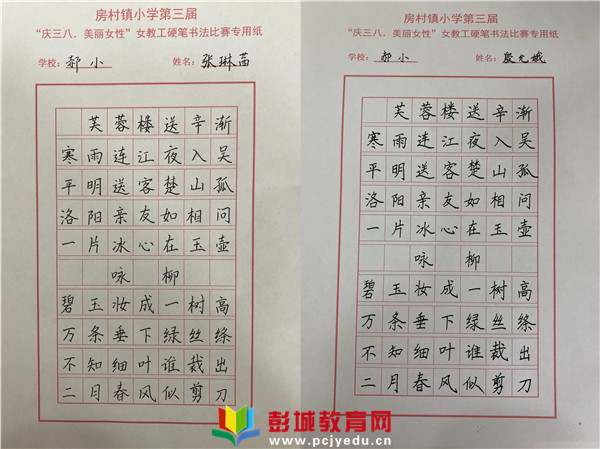 房村镇小学第三届
“庆三八．美丽女性”女教工硬笔书法比赛专用纸
学校：郝小 姓名：张琳苗
芙蓉楼送辛渐
寒雨连江夜入吴
平明送客楚山孤
洛阳亲友如相问
一片冰心在玉壶
咏柳
碧玉妆成一树高
万条垂下绿丝绦
不知细叶谁裁出
二月春风似剪刀
房村镇小学第三届
“庆三八．美丽女性”女教工硬笔书法比赛专用纸
学校：郝小 姓名：殷允娥
芙蓉楼送辛渐
寒雨连江夜入吴
平明送客楚山孤
洛阳亲友如相问
一片冰心在玉壶
咏柳
碧玉妆成一树高
万条垂下绿丝绦
不知细叶谁裁出
二月春风似剪刀
彭城教育网
www.pcjyedu.cn